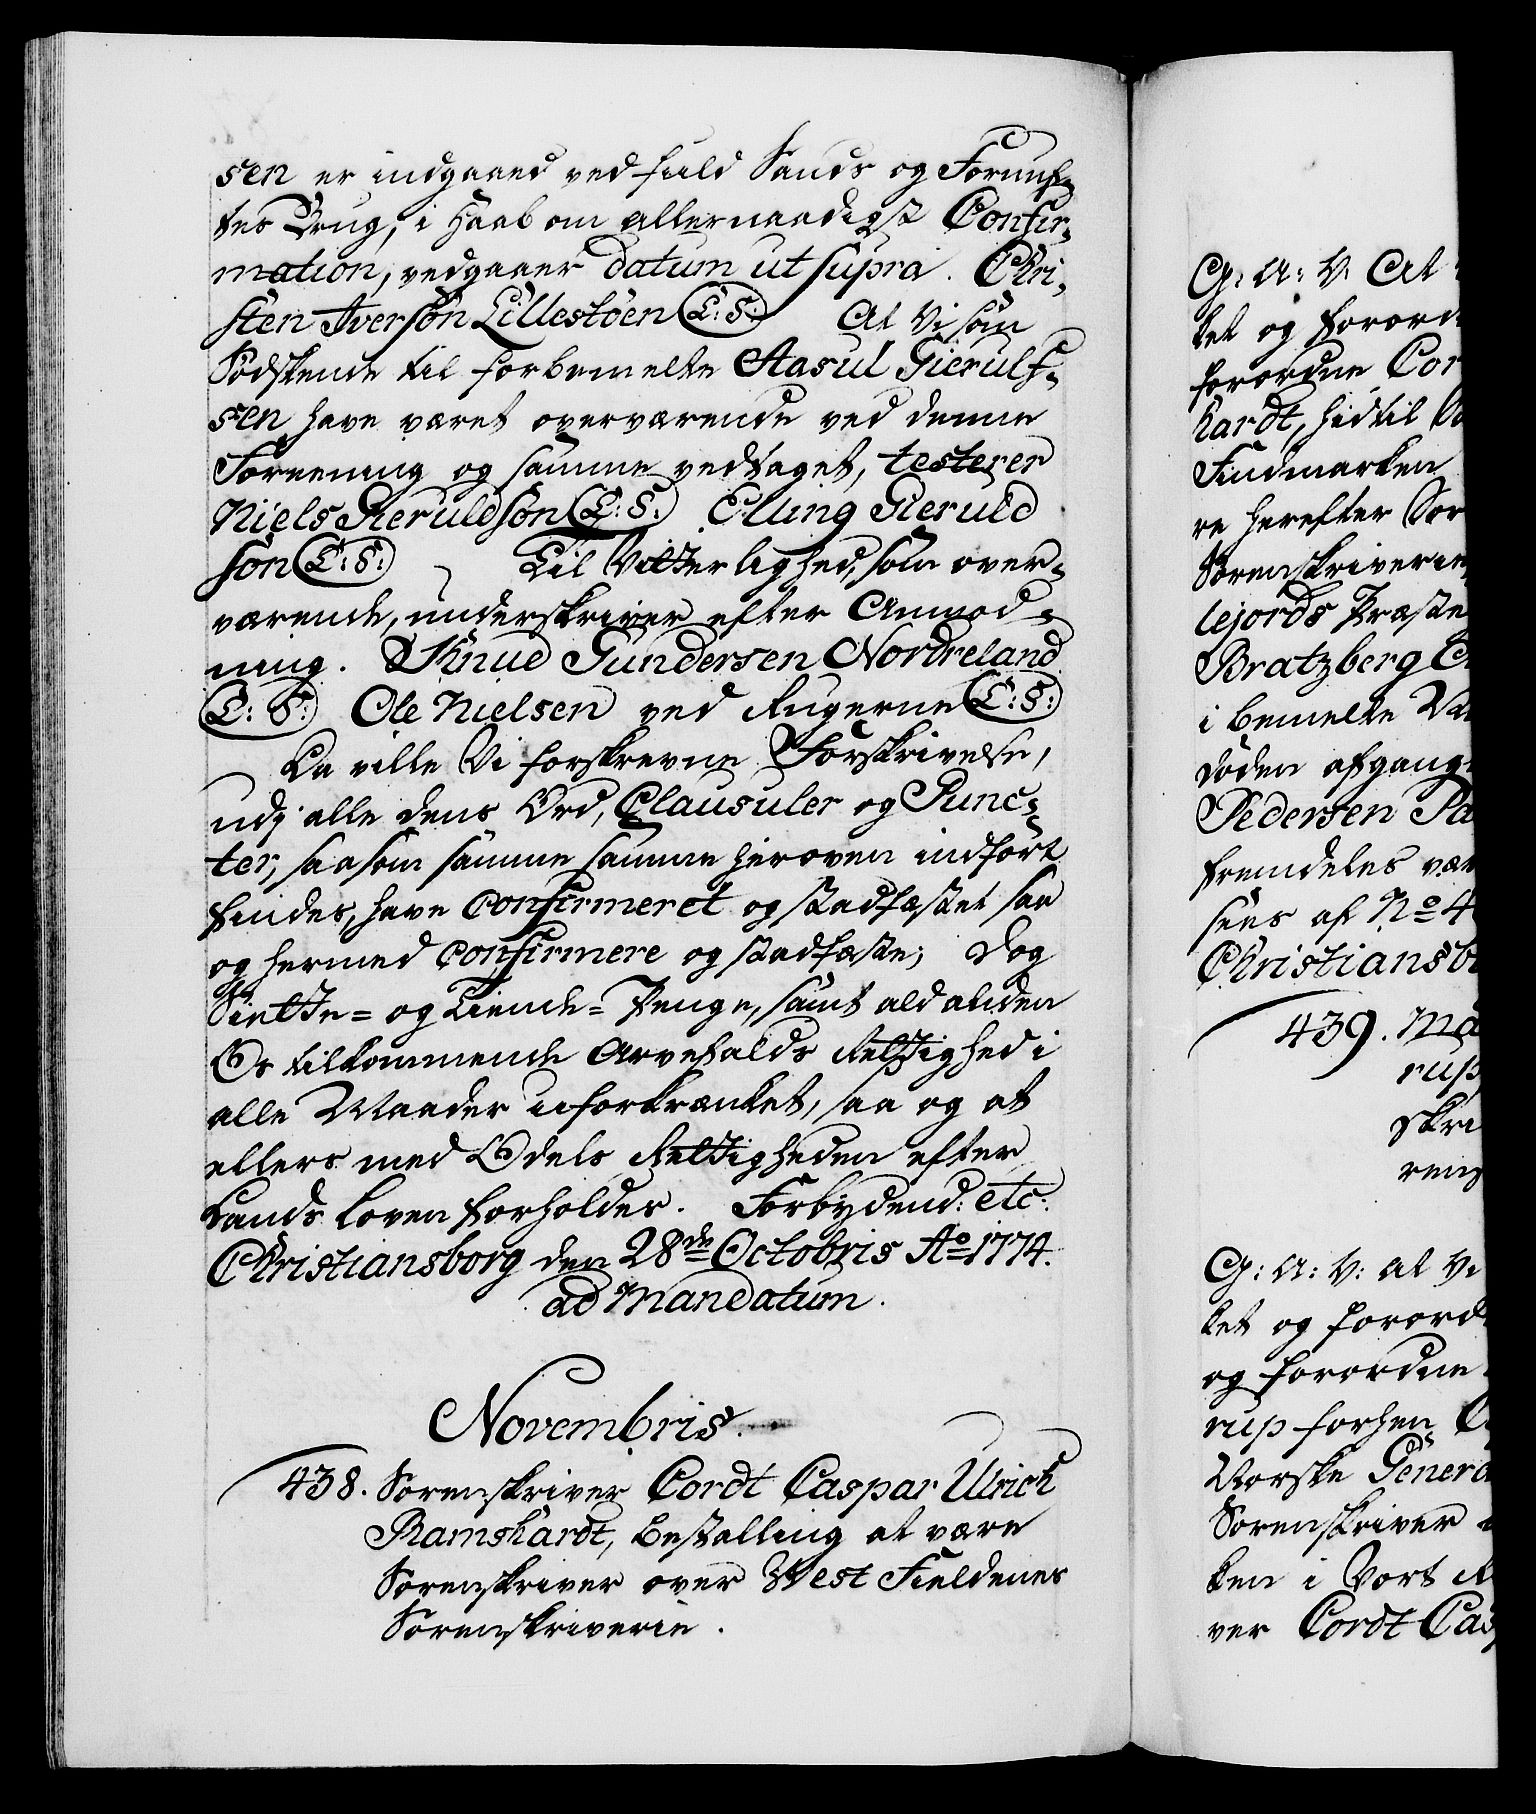 sen er indgaaed ved fuld Sands og Fornuf-
tes Brug, i Haab om allernaadigst Confir-
mation, vedgaaer datum ut supra. Chri-
sten Iversön Lillestöen (L: S:) At Vi som
Södskende til forbemelte Aasul Gierulf-
sen have været overværende ved denne
Foreening og samme vedtaget, testerer
Niels Gieruldsön (L: S:) Elling Gieruld
sön (L: S:) Til Vitterlighed, som over-
værende, underskriver efter Anmod-
ning. Knud Gundersen Nordreland
(L: S:) Ole Nielsen ved Rugerne (L: S:)
Da ville Vi forskrevne Forskrivelse,
udj alle dens Ord, Clausuler og Punc-
ter, saasom samme samme heroven indfört
findes, have Confirmeret og stadfæstet saa
og hermed confirmere og stadfæste; Dog
Siette- og Tiende-Penge, samt ald anden
Os tilkommende Arvefalds Rettighed i
alle Maader uforkrænket, saa og at
ellers med Odels Rettigheden efter
Lands Loven forholdes. Forbydend: etc:
Christiansborg den 28de Octobris Ao 1774.
ad Mandatum.
Novembris.
438. Sorenskriver Cordt Caspar Ulrich
Ramshardt, Bestalling at være
Sorenskriver over West Fieldenes
Sorenskriverie.
G: A: V: At
tet og forord
forordne Cor
hardt, hidtil So
Findmarken
re herefter Sor
Sorenskriverie
lejords Præste
Bratzberg
i bemelte
döden afgang
Pedersen Pa
fremdeles vær
sees af No 4
Christiansb
439. Ma
rup
skri
rens
G: A: V: at Vi
tet og forord
og forordne
rup forhen
Norske Genera
Sorenskriver
ken i Vort
ver Cordt Cas